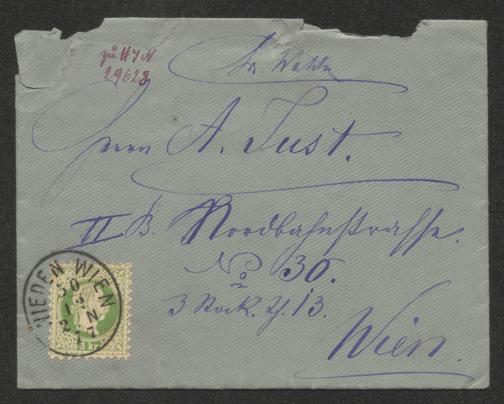 zu H I N
29628
Herrn A. Just.
II B. Nordbahnstrasse.
No 30.
3 Stock. T. 13.
Wien.
WIEDEN WIEN
30
12
7
3 kr